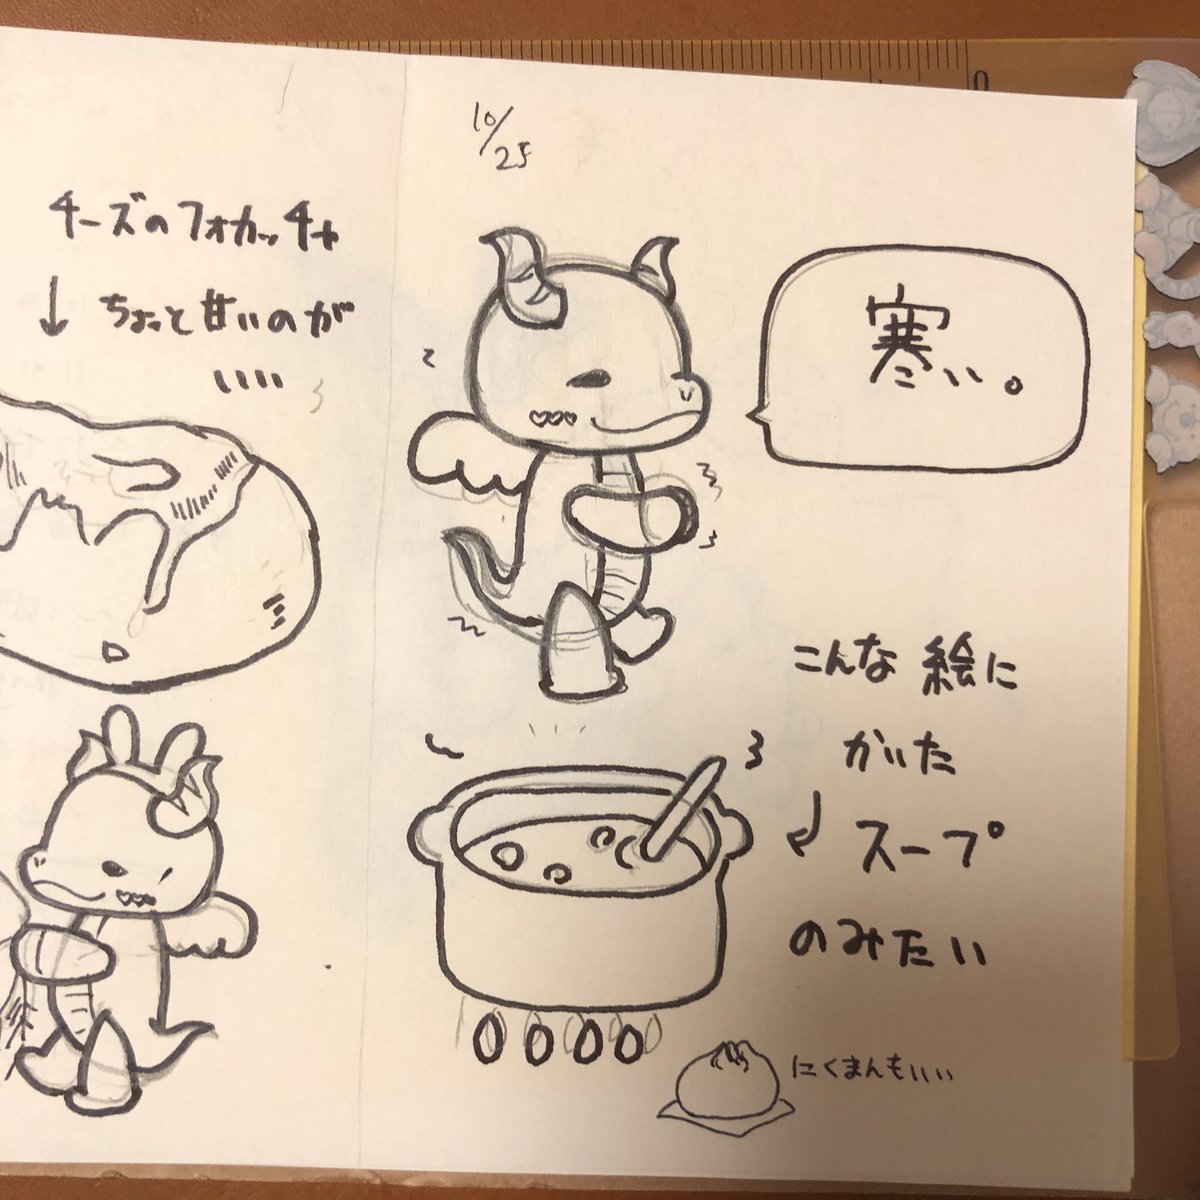 チーズのフォカッチャ
↓ ちょっと甘いのが
いいい
10/25
寒い。
こんな絵に
かいた
スープ
のみたい
にくまんもいい
0